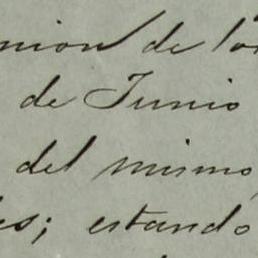 nion de los
de Junio
del mismo,
es; estando